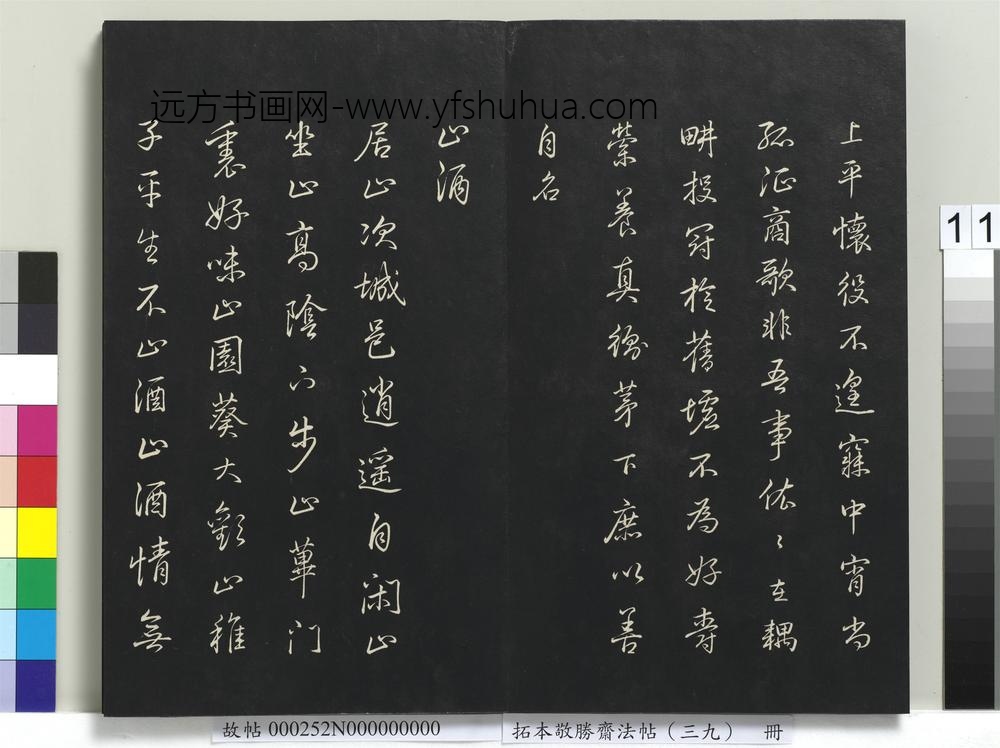 远方书画网-www.yfshuhua.com
上平懷役不遑寐中宵尚
孤征商歌非吾事依〻在耦
畊投冠旋舊墟不為好爵
縈養真衡茅下庶以善
自名
止酒
居止次城邑逍遥自閑止
坐止高陰下步止蓽門
裏好味止園葵大歡止稚
子平生不止酒止酒情無
11
故帖 000252N000000000
拓本敬勝齋法帖（三九） 冊